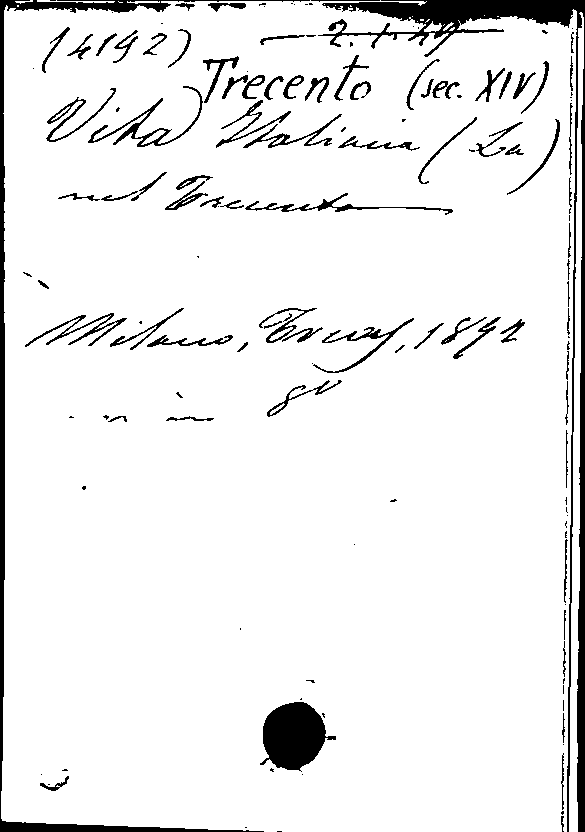 (4192) 2.1.49
Trecento (sec. XIV)
Vita Italiana (La)
nel Trecento
Milano, Treves, 1892
in 8º